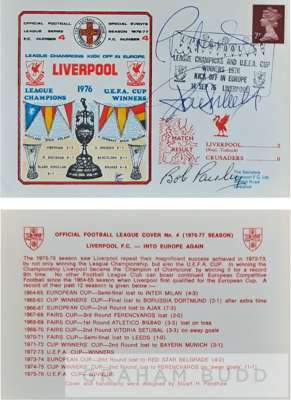 OFFICIAL FOOTBALL
LEAGUE SERIES
F.C. NUMBER 4
SPECIAL EVENTS
SEASON 1976-77
F.C. NUMBER 4
LEAGUE CHAMPIONS KICK OFF IN EUROPE
LIVERPOOL
LEAGUE CHAMPIONS
1976
U.E.F.A. CUP WINNERS
7P
LIVERPOOL
LEAGUE CHAMPIONS AND U.E.F.A. CUP
WINNERS 1976
KICK OFF IN EUROPE
14 SEP 76 LIVERPOOL
MATCH
RESULT
LIVERPOOL 2
CRUSADERS 0
Bob Paisley
The Secretary
Liverpool F.C. Ltd
OFFICIAL FOOTBALL LEAGUE COVER No. 4 (1976-77 SEASON)
LIVERPOOL F.C. — INTO EUROPE AGAIN
The 1975-76 season saw Liverpool repeat their magnificent success achieved in 1972-73,
do not only winning the League Championship, but also the U.E.F.A. CUP. In winning the
Championship Liverpool became the 'Champion of Champions' by winning it for a record
9th time. No other Football League Club can boast continued European Competitive
Football since the 1964-65 season when Liverpool first qualified for the European Cup. A
record of their past 12 season is given below:—
1964-65 EUROPEAN CUP—Semi-final lost to INTER MILAN (4-3)
1965-66 CUP WINNERS' CUP—Final lost to BORUSSIA DORTMUND (2-1) after extra time
1966-67 EUROPEAN CUP—2nd Round lost to AJAX (7-3)
1967-68 FAIRS CUP—3rd Round FERENCVAROS lost (2-0)
1968-69 FAIRS CUP—1st Round ATLETICO BILBAO (3-3) lost on toss
1969-70 FAIRS CUP—2nd Round VITORIA SETUBAL (3-3) on away goals
1970-71 FAIRS CUP—Semi-final lost to LEEDS (1-0)
1971-72 CUP WINNERS' CUP—2nd Round lost to BAYERN MUNICH (3-1)
1972-73 U.E.F.A. CUP—WINNERS
1973-74 EUROPEAN CUP—2nd Round lost to RED STAR BELGRADE (4-2)
1974-75 CUP WINNERS' CUP—2nd Round lost to FERENCVAROS on 'away goals' (1-1)
1975-76 U.E.F.A. CUP—WINNERS
Cover and handstamp were designed by Stuart H. Renshaw
GRAHAM BUDD